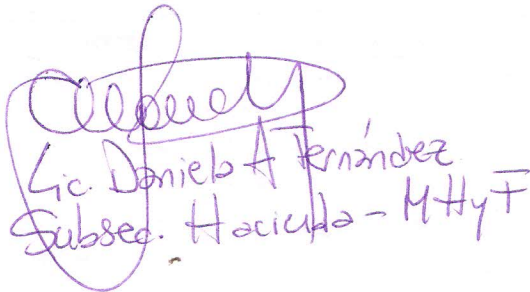 Lic. Daniela A Fernández
Subsec. Hacienda - MHyF